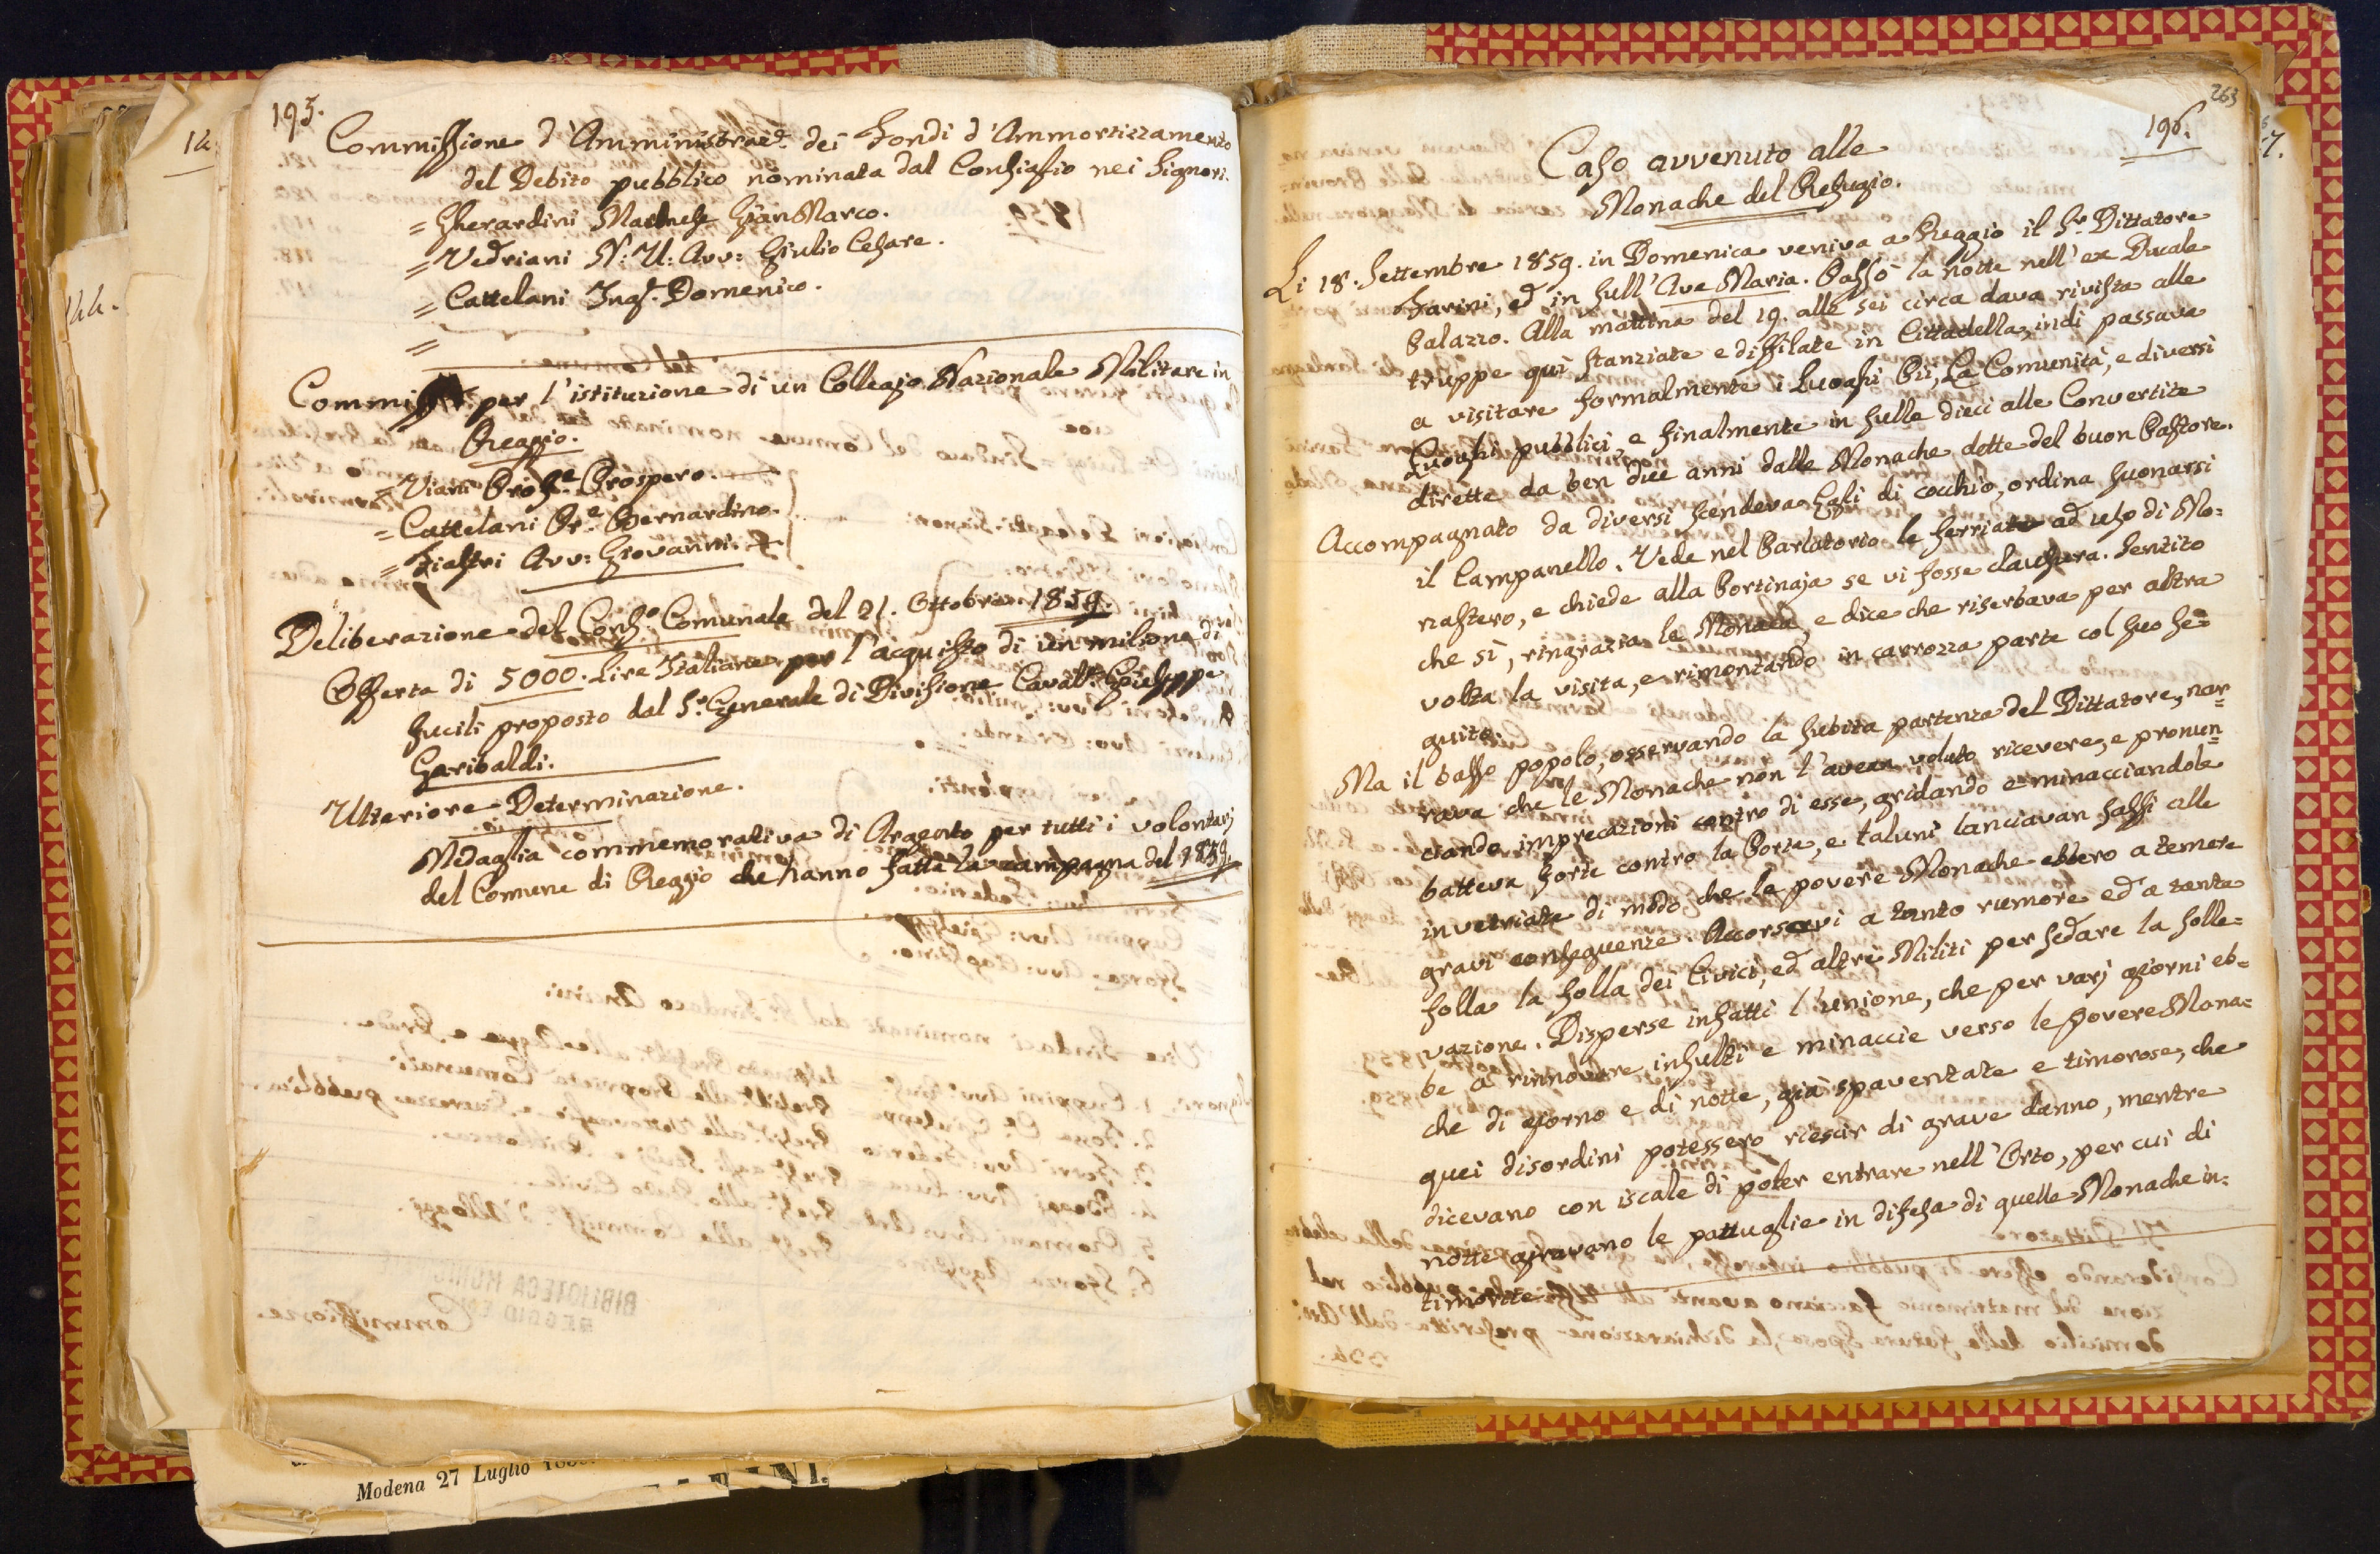 195.
Commissione d'Amministraz.e dei Fondi d'Ammortizzamento
del Debito pubblico nominata dal Consiglio nei Signori.
= Gherardini Marchese Gian Marco.
= Vedriani N: U: Avv: Giulio Cesare.
= Cattelani Ing.e Domenico.
=
per l'istituzione di un Collegio Nazionale Militare in
Reggio.
= Viani Prof.e Prospero.
= Cattelani Pr.e Bernardino.
= Fiastri Avv: Giovanni.
Deliberazione del Cons.o Comunale del 21. Ottobre 1859.
Offerta di 5000. Lire Italiane per l'acquisto di un milione di
fucili proposto dal S.r Generale di Divisione Caval.e Giuseppe
Garibaldi.
Ulteriore Determinazione.
Medaglia commemorativa di Argento per tutti i volontarj
del Comune di Reggio che hanno fatta la campagna del 1859.
BIBLIOTECA MUNICIPALE
REGGIO
Modena 27 Luglio
263
196.
Caso avvenuto alle
Monache del Refugio.
Li 18. Settembre 1859. in Domenica veniva a Reggio il S.r Dittatore
Farini, ed in sull'Ave Maria. Passò la notte nell'ex Ducale
Palazzo. Alla mattina del 19. alle sei circa dava rivista alle
truppe quì stanziate e diffilate in Cittadella, indi passava
a visitare formalmente i Luoghi Pii, La Comunità, e diversi
Luoghi pubblici, e finalmente in sulle dieci alle Convertite
dirette da ben due anni dalle Monache dette del buon Pastore.
Accompagnato da diversi scendeva Egli di cocchio, ordina suonarsi
il Campanello. Vede nel Parlatorio le ferriate ad uso di Mo=
nastero, e chiede alla Portinaja se vi fosse clausura. Sentito
che sì, ringrazia le Monaca, e dice che riserbava per altra
volta la visita, e rimontando in carrozza parte col suo se=
guito.
Ma il basso popolo, osservando la subita partenza del Dittatore, nar=
rava che le Monache non l'avean voluto ricevere, e pronun=
ciando imprecazioni contro di esse, gridando e minacciandole
batteva forte contro la Porta, e taluni lanciavan sassi alle
invetriate di modo che le povere Monache ebbero a temere
gravi conseguenze. Accorsevi a tanto rumore ed a tanta
folla la folla dei Civici, ed altri Militi per sedare la solle=
vazione. Disperse infatti l'unione, che per varj giorni eb=
be a rinnovare insulti e minaccie verso le povere Mona=
che di giorno e di notte, già spaventate e timorose, che
quei disordini potessero riescir di grave danno, mentre
dicevano con iscale di poter entrare nell'Orto, per cui di
notte giravano le pattuglie in difesa di quelle Monache in=
timorite.